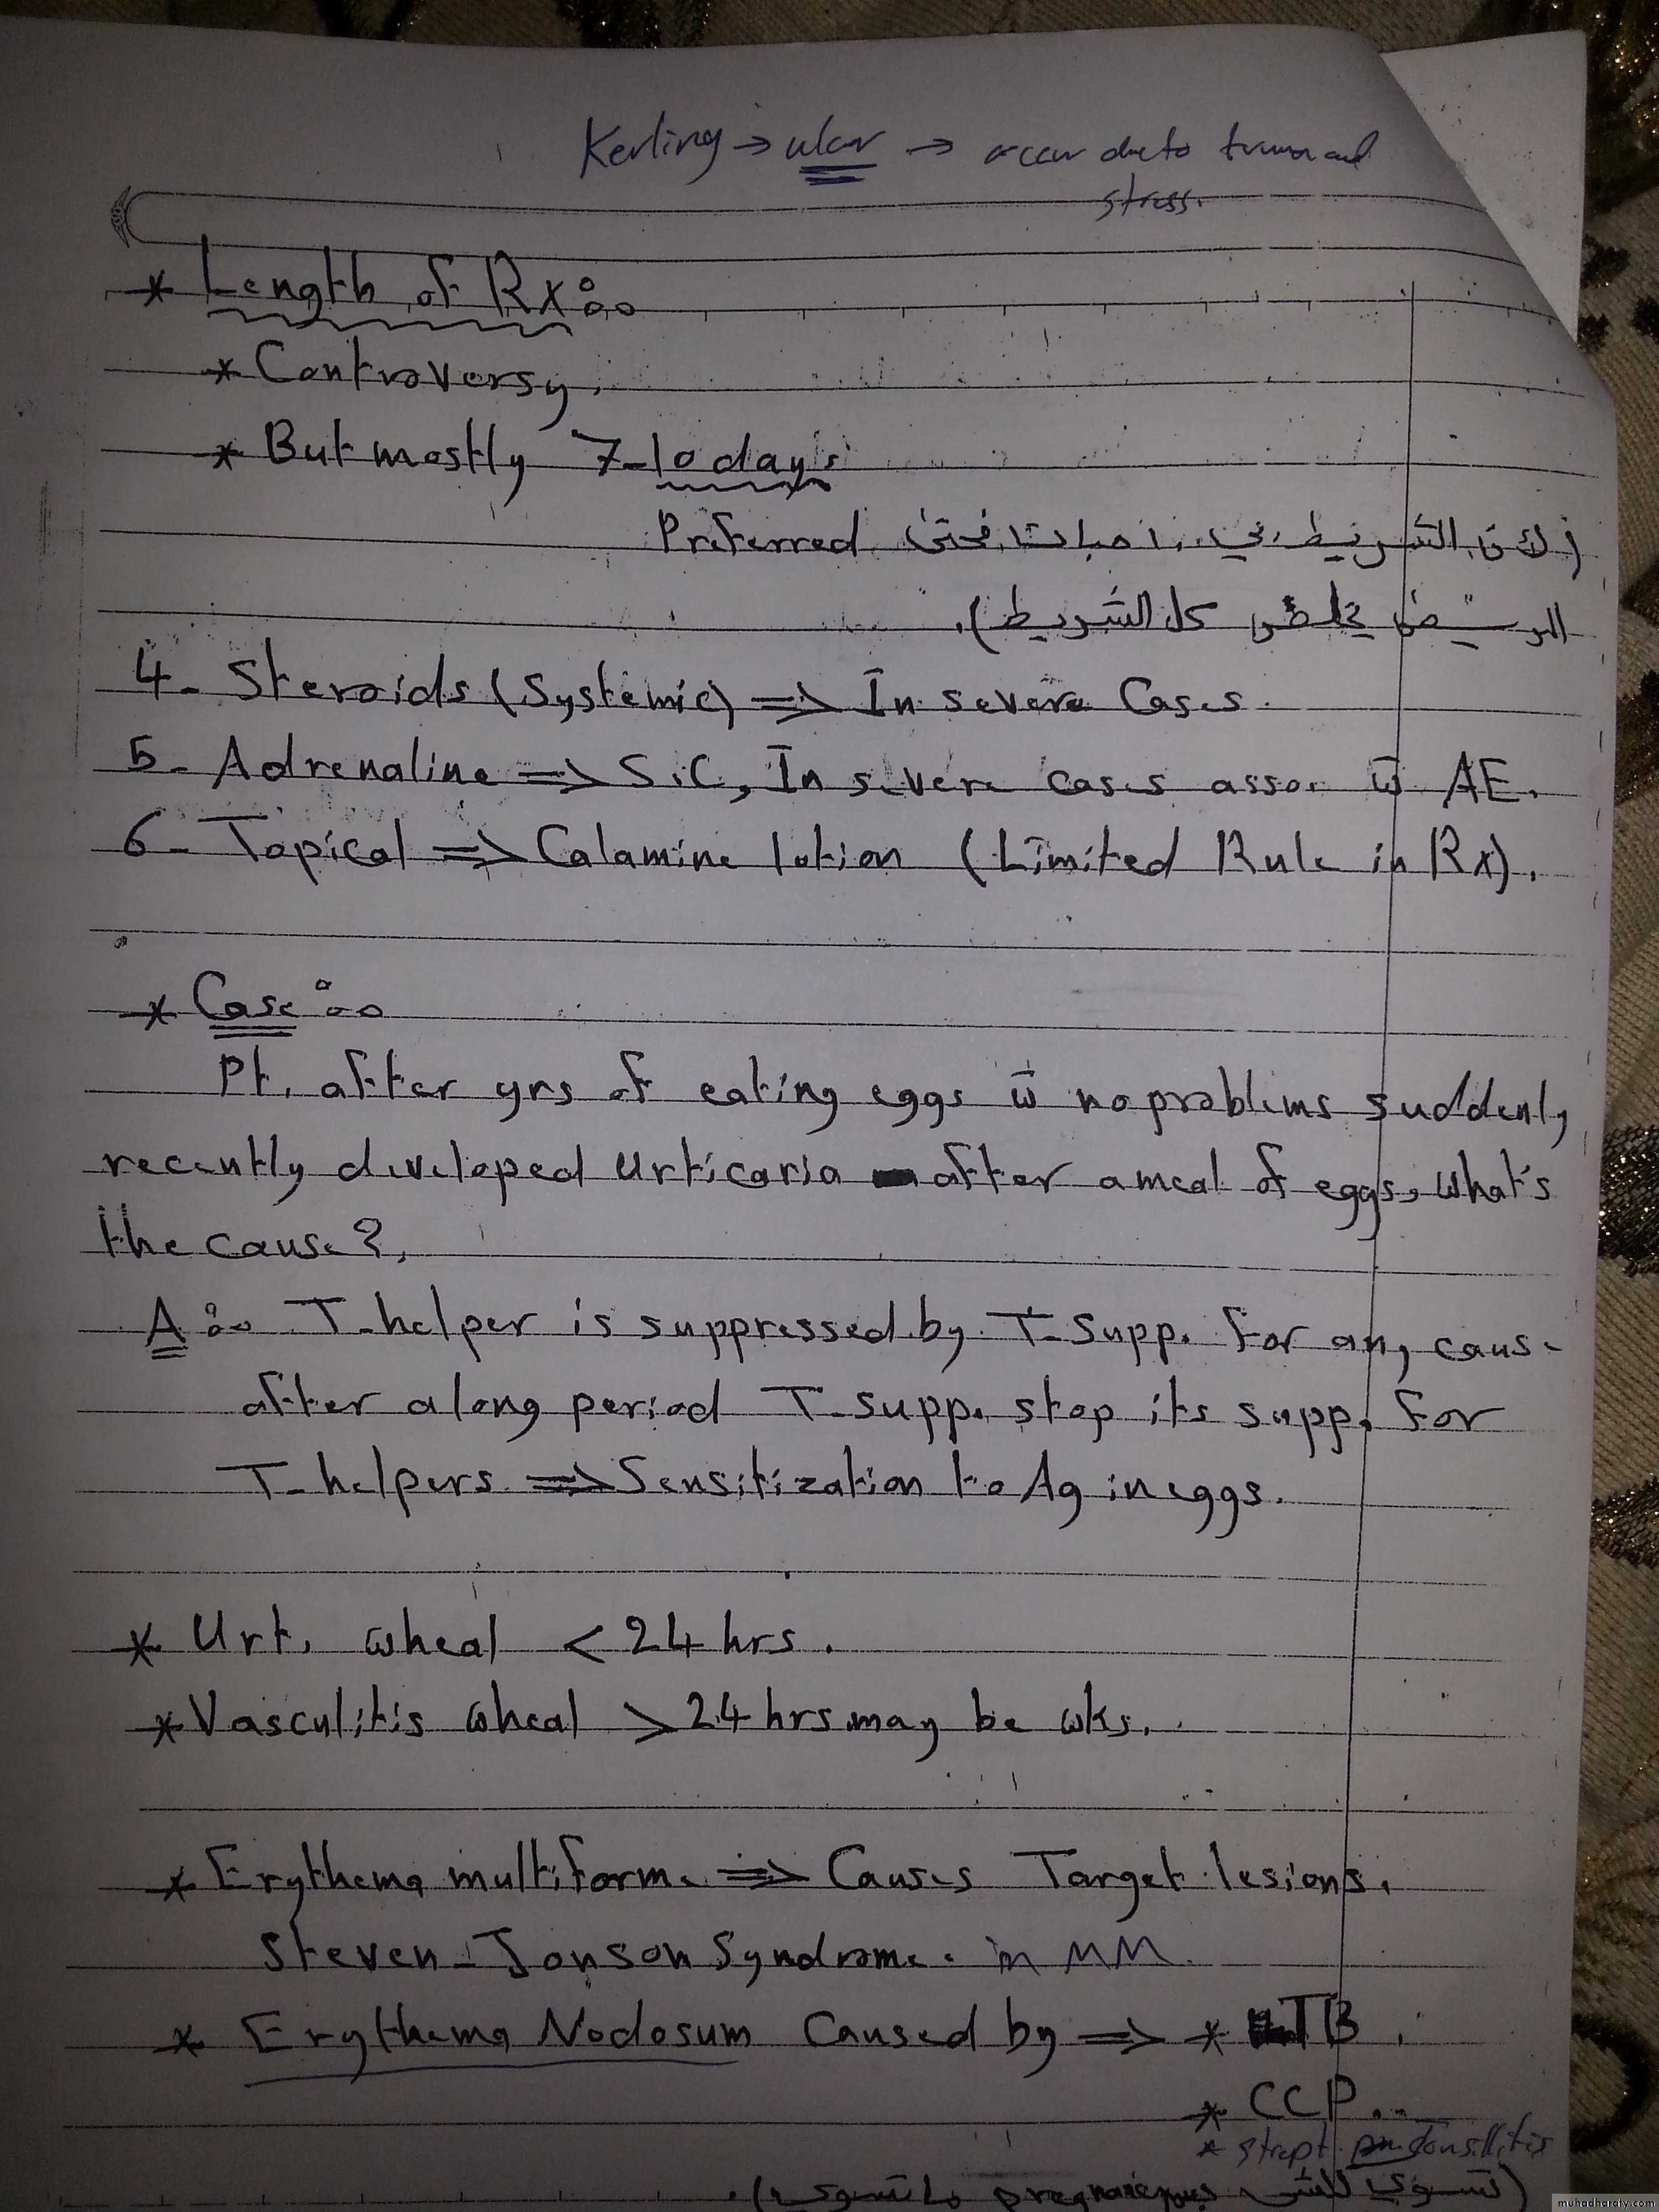 Kerling → ulcer → occur due to truma and
stress.
* Length of Rx:
* Controversy.
* But mostly 7-10 days
(لأن الشريط بي ١٠ حبات فحتى Preferred
المريض يخلص كل الشريط).
4- Steroids (Systemic) ⇒ In severe Cases.
5- Adrenaline ⇒ S.C, In severe cases asso. w̄ AE.
6- Topical ⇒ Calamine lotion (Limited Rule in Rx).
* Case:
Pt. after yrs of eating eggs w̄ no problems suddenly
recently developed urticaria after a meal of eggs, what's
the cause?,
A: T-helper is suppressed by T-Supp. For any cause
after a long period T-supp. stop its supp. For
T-helpers ⇒ Sensitization to Ag in eggs.
* Urt. wheal < 24 hrs.
* Vasculitis wheal > 24 hrs may be wks.
* Erythema multiforme ⇒ Causes Target lesions.
Steven-Jonson Syndrome. in MM.
* Erythema Nodosum Caused by ⇒ * TB.
* CCP..
* strept. tonsillitis
pregnancy
muhadharaty.com